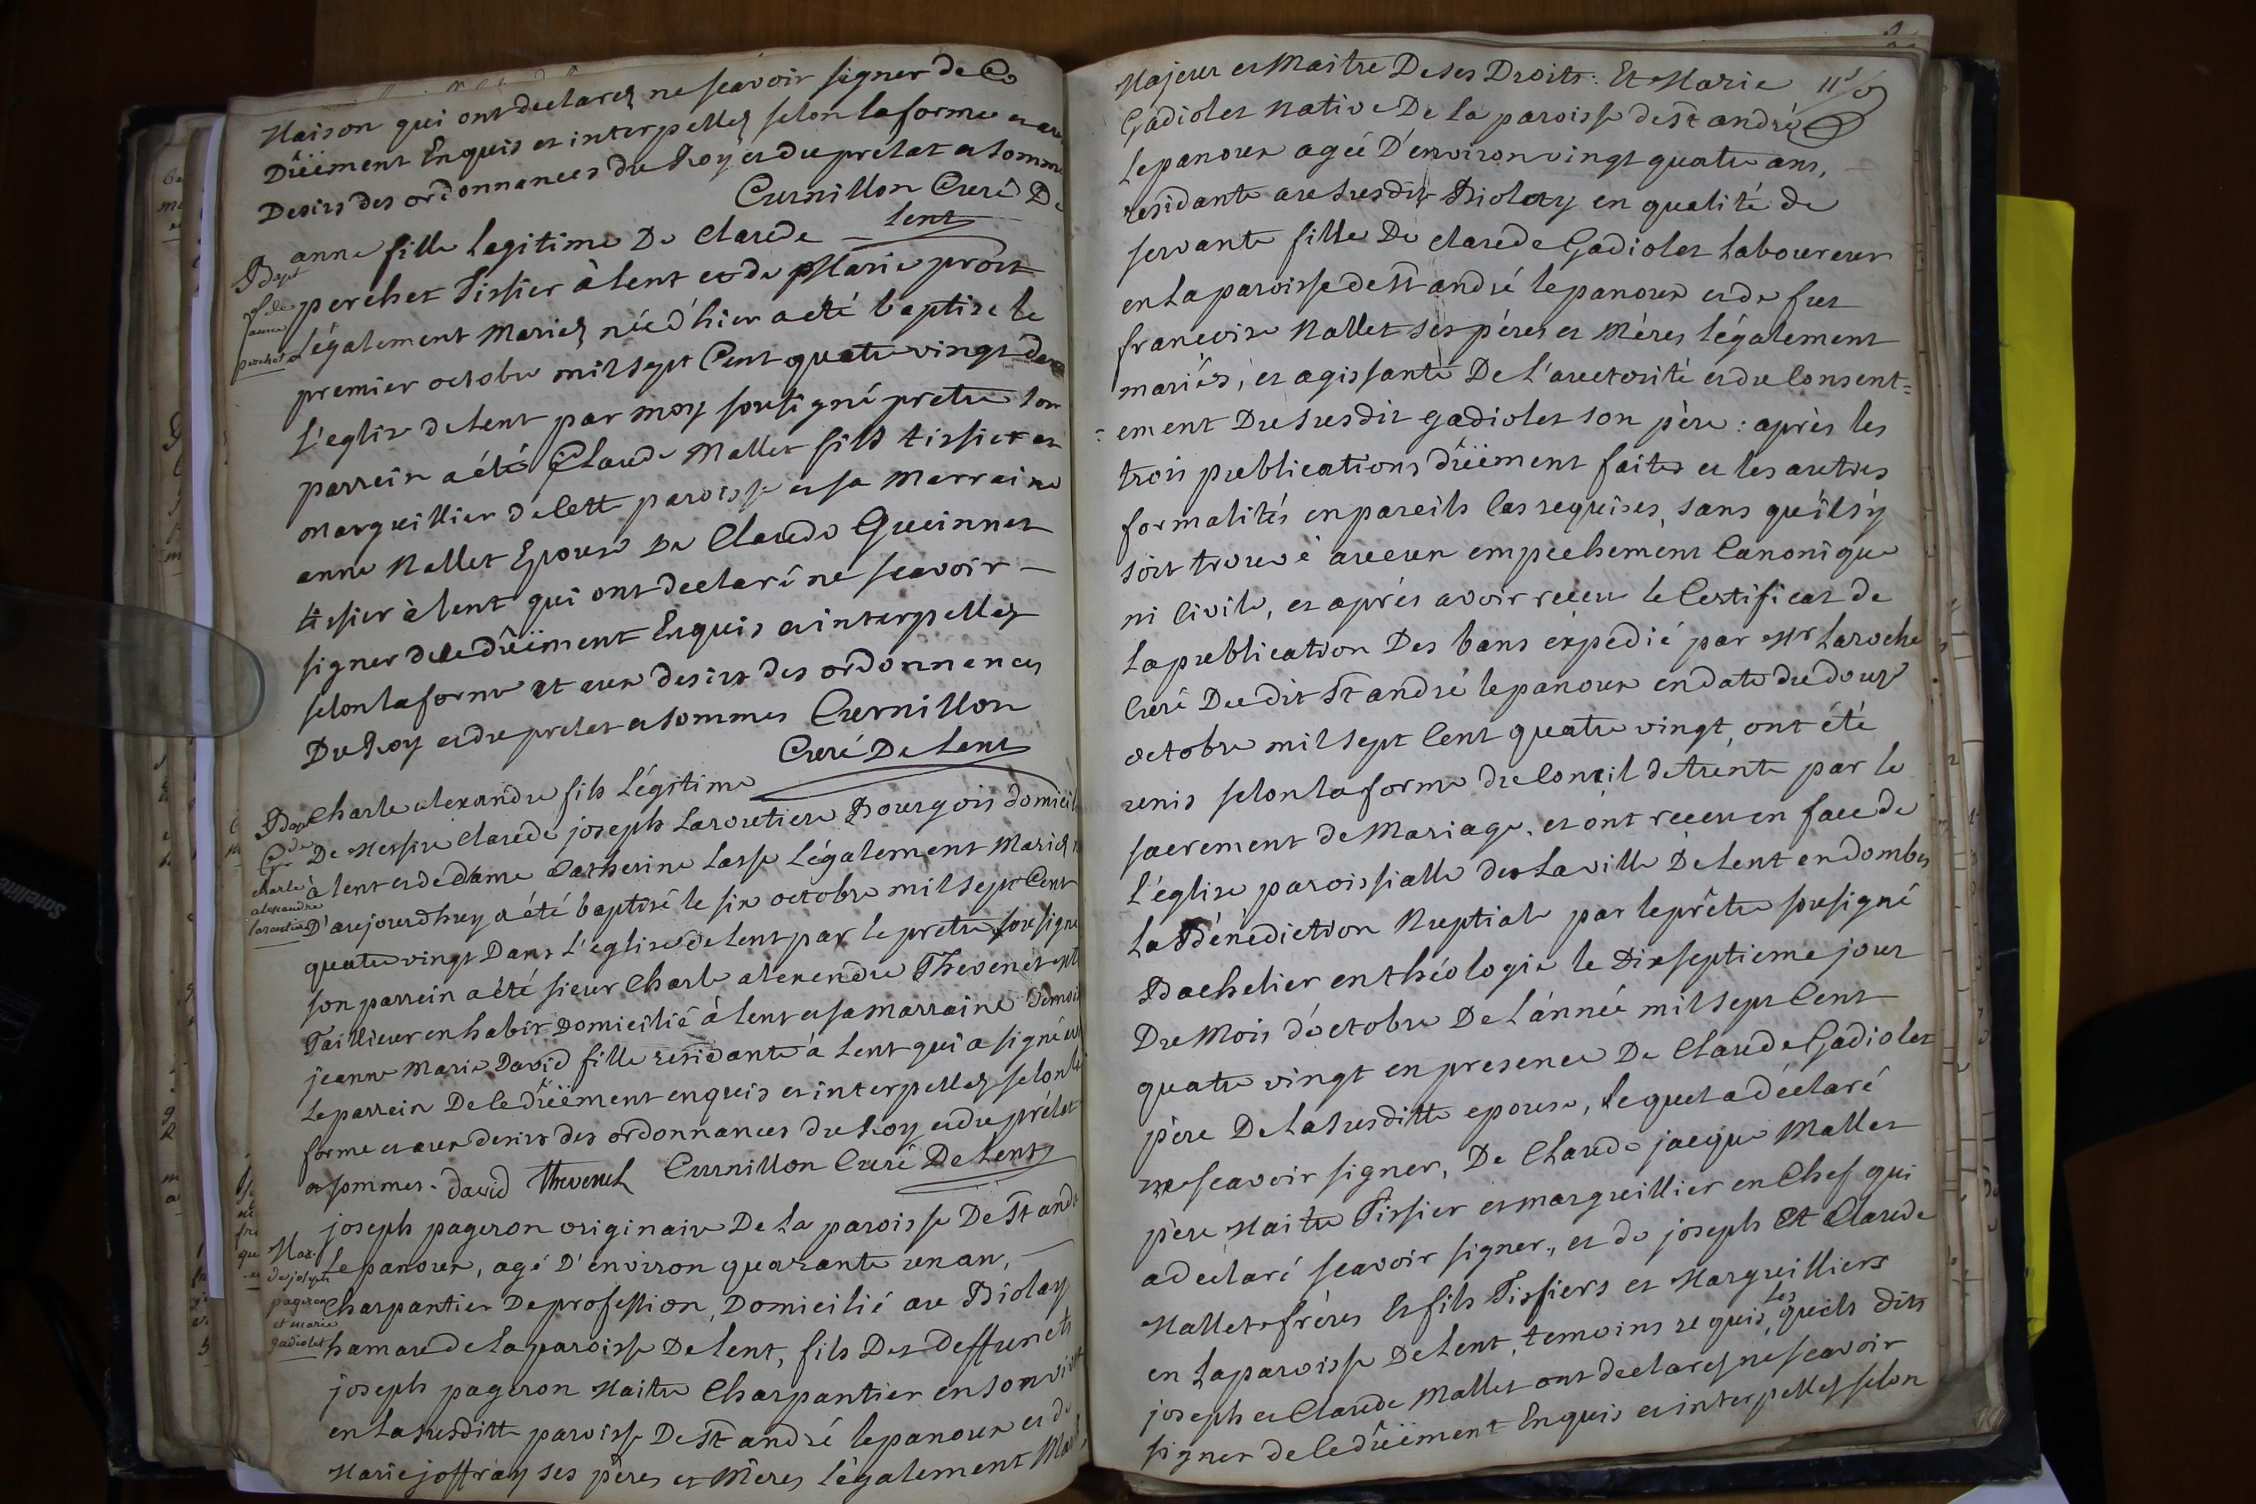 Maison qui ont declarez ne scavoir signer de ce
Dûëment Enquis et interpellez selon la forme et au
Desirs des ordonnances du Roy et du prelat a somme
Curnillon Curé De
Lent
Bapt
de
anne
perchet
anne fille legitime De Claude
perchet Tissier à lent et de Marie prost
légalement Mariez née d'hier a eté baptise le
premier octobre mil sept Cent quatre vingt dans
L'eglise de Lent par moy sousigné pretre son
parrein a été Claude Mallet fils tissier et
marguillier de Cett paroisse et sa Marraine
anne Mallet Epouse De Claude Gueinnet
tissier à lent qui ont declaré ne scavoir
signer de ce dûëment Enquis et interpellez
selon la forme et aux desirs des ordonnances
Du Roy et du prelat a sommes Curnillon
Curé De Lent
Bapt
de
charle
alexandre
laroutiere
Charle alexandre fils Légitime
De Messire Claude joseph Laroutiere Bourgois domicil
à lent et de Dame Catherine Lasse Légalement Mariez n
D'aujourdhuy a été baptisé le six octobre mil sept Cent
quatre vingt Dans L'eglise de Lent par le pretre sousigné
son parrein a été sieur Charle alexendre Thevenet
Taillieur en habit Domicilié à lent et sa marraine Demois
jeanne Marie David fille residante à Lent qui a signé
Le parrein De Ce dûëment enquis et interpellez selon la
forme et aux desirs des ordonnances du Roy et du prélat
a sommes. david thevenet Curnillon Curé De Lent
Mar.
de joseph
pageron
et marie
gadiolet
joseph pageron originaire De La paroisse De St andré
Le panoux, agé D'environ quarante un an,
Charpantier De profession, Domicilié au Biolay
hamau de La paroisse De lent, fils Des deffuncts
joseph pageron Maitre Charpantier en son vivant
en La susditte paroisse De St andré lepanoux et de
Marie joffray ses pères et Mères légalement Mariés
Majeur et Maitre De ses Droits: Et Marie
Gadiolet Native De La paroisse de St andré
Lepanoux ageé D'environ vingt quatre ans,
residante au susdit Biolay en qualité de
servante fille De claude Gadiolet Laboureur
en La paroisse de St andré lepanoux et de fut
francoise Mallet ses pères et Mères légalement
mariés, et agissante De L'auctorité et du Consent=
=ement Du susdit gadiolet son père: après les
trois publications dûëment faites et les autres
formalités en pareils Cas requises, sans qu'il s'y
soit trouvé aucun empechement Canonique
ni Civile, et aprés avoir receu le Certificat de
La publication Des bans éxpedié par Mr Laroche
Curé Du dit St andré lepanoux en date du douze
octobre mil sept Cent quatre vingt, ont été
unis selon la forme du Concil de trente par le
sacrement de Mariage, et ont receu en face de
L'église paroissialle de La ville De Lent en dombes
La Bénédiction Nuptiale par le prêtre sousigné
Bachelier en théologie le Dixseptieme jour
Du Mois d'octobre De L'année mil sept Cent
quatre vingt en presence De Claude Gadiolet
père De La susditte epouse, lequel a déclaré
ne scavoir signer, De Claude jacque Mallet
père Maitre Tissier et marguillier en Chef qui
a declaré scavoir signer, et de joseph Et Claude
Mallet frères Et fils Tissiers et Marguilliers
en La paroisse De Lent, temoins requis, Les quels dits
joseph et Claude Mallet ont declarez né scavoir
signer de Ce dûëment Enquis et interpellez selon